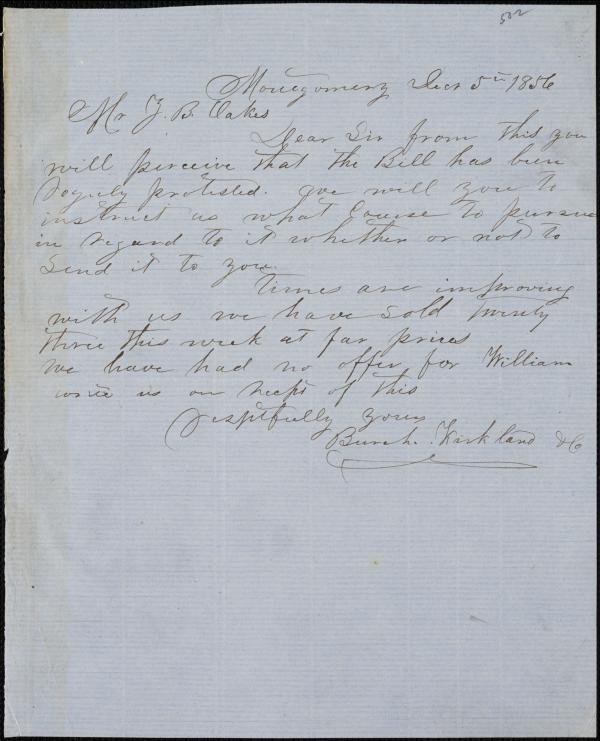 502
Montgomery Decr 5th 1856
Mr Z. B. Oakes
Dear Sir from this you
will perceive that the Bill has been
protested. We will you to
instruct us what Course to pursue
in regard to it whether or not to
Send it to you.
Times are improving
with us we have sold twenty
three this week at far prices
We have had no offer for William
write us on of this
respetfully yours
Burch. Kirkland & C